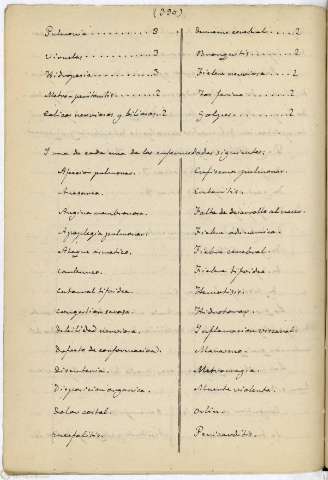 (330)
Pulmonía ........ 3
Viruelas ........ 3
Hidropesía ....... 3
Metro-peritonitis ... 2
Cólicos nerviosos y biliosos. 2
Derrame cerebral ..... 2
Bronquitis ........ 2
Fiebre nerviosa .... 2
2
Golpes ........ 2
Y una de cada una de las enfermedades siguientes:
Afección pulmonar.
Anasarca.
Angina membranosa.
Apoplegía pulmonar.
Ataque asmático.
Catarral tifoidea.
Congestión serosa.
Debilidad nerviosa.
Defecto de conformación.
Disentería.
Disposición orgánica.
Dolor costal.
Encefalitis.
Enfisema pulmonar.
Enteritis.
Falta de desarrollo al nacer.
Fiebre adinámica.
Fiebre cerebral.
Fiebre tifoidea.
Hemotisis.
Hidrotorax.
Inflamación visceral.
Marasmo.
Metrorragia.
Muerte violenta.
Pericarditis.